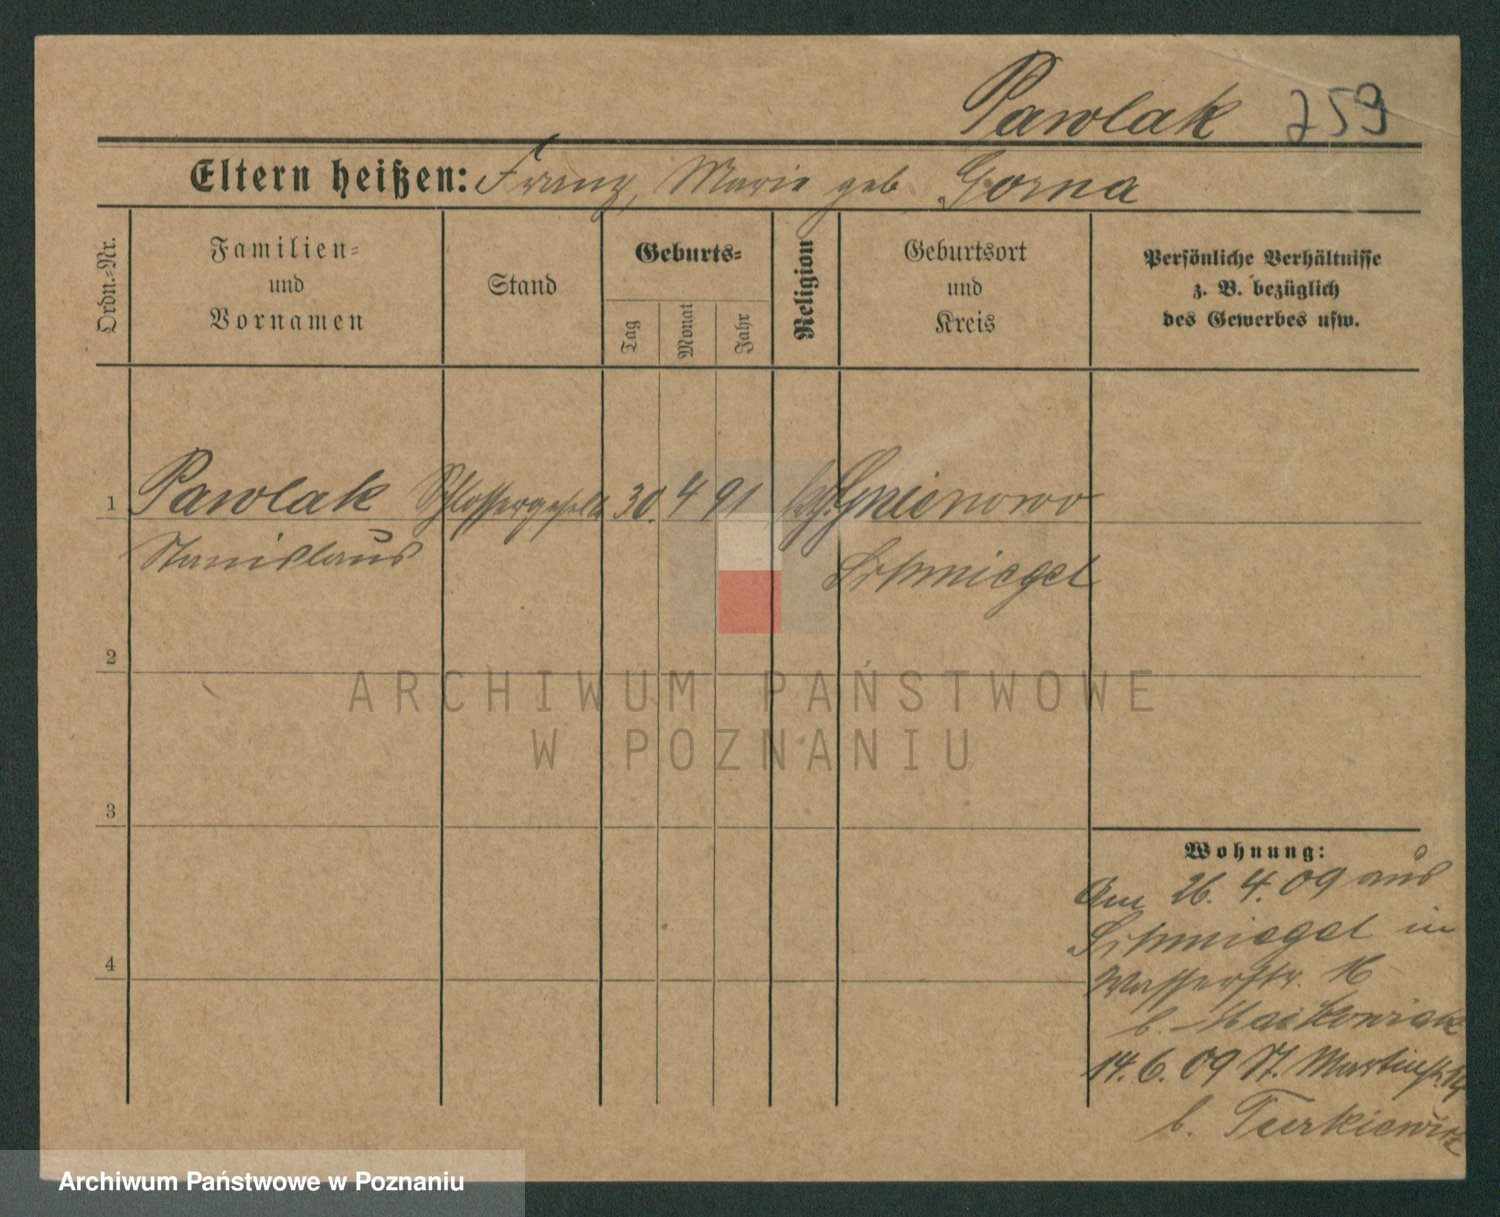 Pawlak 259
Eltern heißen: Franz, Marie geb Gorna
Ordn.-Nr.
Familien-
und
Vornamen
Stand
Geburts-
Tag
Monat
Jahr
Religion
Geburtsort
und
Kreis
Persönliche Verhältnisse
z. B. bezüglich
des Gewerbes usw.
1 Pawlak Schlossergeselle 30. 4 91 kth. Gniewowo
Stanislaus Schmiegel
2
ARCHIWUM PAŃSTWOWE
W POZNANIU
3
Wohnung:
Am 26. 4. 09 aus
Schmiegel in
Wasserstr. 16
b. Maćkowiak
4
14. 6. 09 St. Martinstr. 14
b. Turkiewicz
Archiwum Państwowe w Poznaniu